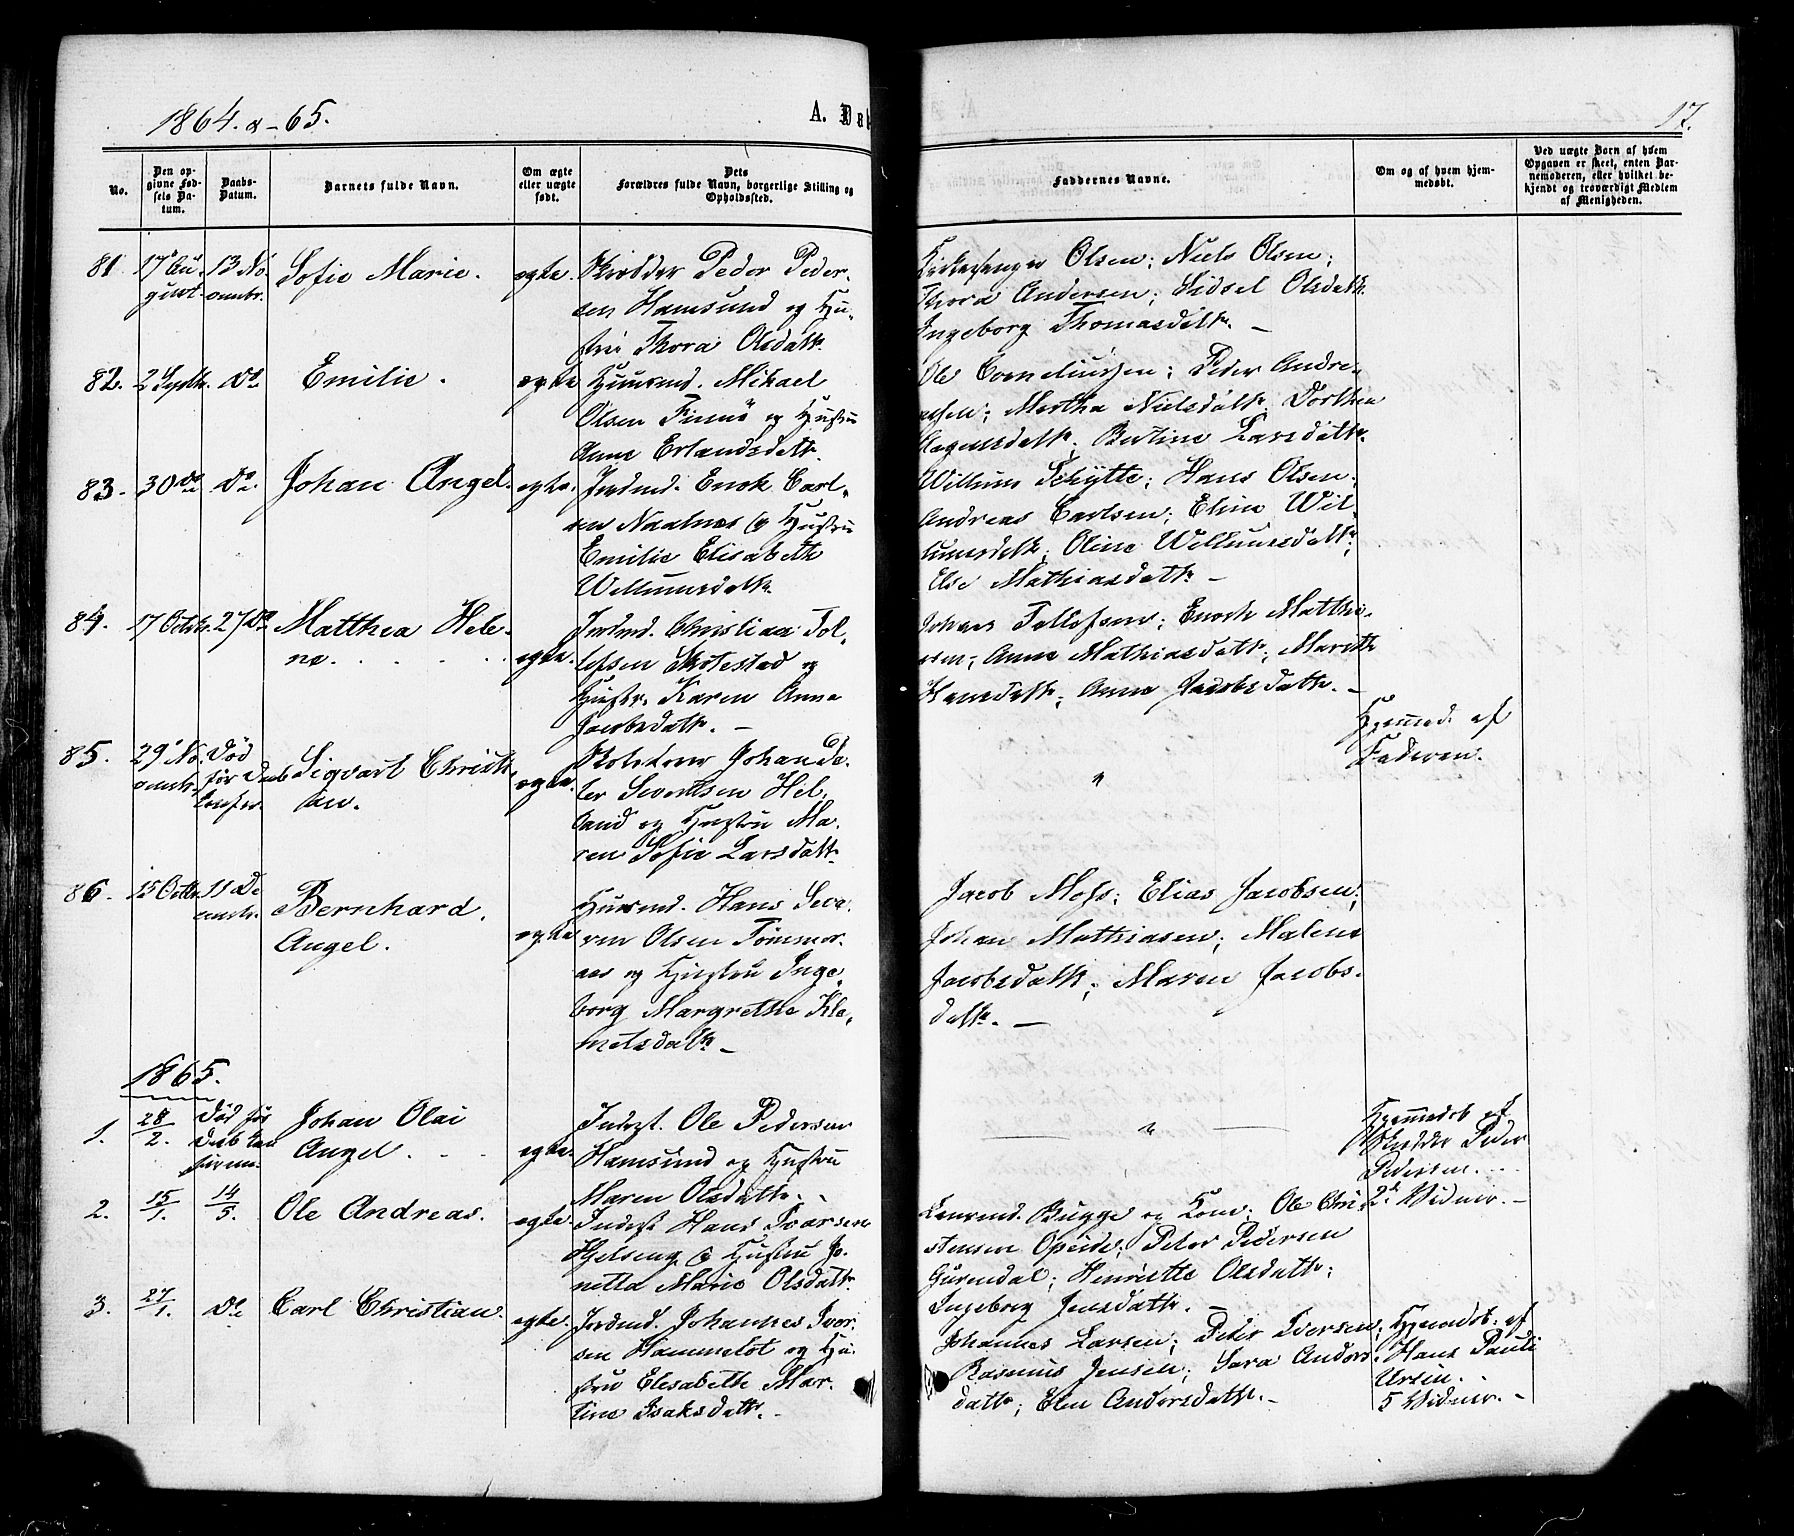 1864. & – 65.
A. Dab
17.
No.
Den op-
givne Fød-
sels Da-
tum.
Daabs-
Datum.
Barnets fulde Navn.
Om ægte
eller uægte
født.
Dets
Forældres fulde Navn, borgerlige Stilling og
Opholdssted.
Faddernes Navne.
Om og af hvem hjem-
medøbt.
Ved uægte Barn af hvem
Opgaven er skeet, enten Bar-
nemoderen, eller hvilket be-
kjendt og troværdigt Medlem
af Menigheden.
81 17 Au-
gust. 13 No-
vembr. Sofie Marie. egte. Skrædder Peder Peder-
sen Hamsund og Hu-
stru Thora Olsdattr.
Kirkesanger Olsen; Niels Olsen;
Thora Andersen; Sidsel Olsdattr.
Ingeborg Thomasdattr. –
82. 2 Septbr. Do Emilie. egte Huusmd. Mikael
Olsen Finnø og Hustru
Anne Erlandsdattr.
Ole Corneliussen; Peder Andre-
asen; Martha Nielsdattr. Dorthea
Aagensdattr. Bertine Larsdattr.
83. 30 do Do. Johan Angel. egte. Jordmd. Enok Carl-
sen Naalnes og Hustru
Emilie Elisabeth
Willumsdattr.
Willum Schytte; Hans Olsen;
Andreas Carlsen; Eline Wil-
lumsdattr; Oline Willumsdattr;
Else Mathiasdattr. –
84. 17 Octobr. 27 Do Matthea Hele-
ne. egte. Jordmd. Christian Tol-
lefsen Skotestad og
Hustr. Karen Anna
Jacobsdattr. –
Johan Tollefsen; Enoch Matthi-
sen; Anne Mathiasdattr; Mareth
Hansdattr; Anne Jacobsdattr. –
85. 29 No-
vembr. Død
før Daab Sigvart Christi-
an. egte. Skolelærer Johan Pe-
ter Sivertsen Hel-
land og Hustru Ma-
ren Sofie Larsdattr.
"
Hjemmed. af
Faderen.
86. 15 Octbr. 11 De-
cembr. Bernhard
Angel. egte Huusmd. Hans Seve-
rin Olsen Tømmer-
aas og Hustru Inge-
borg Margrethe Kle-
metsdattr –
Jacob Moss; Elias Jacobsen;
Johan Mathiasen; Malene
Jacobsdattr; Maren Jacobs-
dattr. –
1865.
1. 28/2. Død før
Daab Johan Olai
Angel. egte. Inderst. Ole Pedersen
Hamsund og Hustru
Maren Olsdattr. –
"
Hjemmedøb. af
Skrædder Peder
Pedersen.
2 Vidner. –
2. 15/1. 14/5. Ole Andreas. egte. Inderst Hans Ivarsen
Helseng og Hustru Jo-
netta Marie Olsdattr
Lensmd. Bugge og Kone; Ole Chri-
stensen Opeide; Peter Pedersen
Gurendal; Henriette Olsdattr;
Ingeborg Jensdattr. –
3. 27/1. Do Carl Christian. egte. Jordmd. Johannes Iver-
sen Hammelot og Hu-
stru Elesabeth Mar-
tine Isaksdattr. –
Johannes Larsen; Peder Iversen;
Rasmus Jensen; Sara Anders-
dattr; Elen Andersdattr. –
Hjemmedøb. af
Hans Pauli
Ursin.
5 Vidner. –